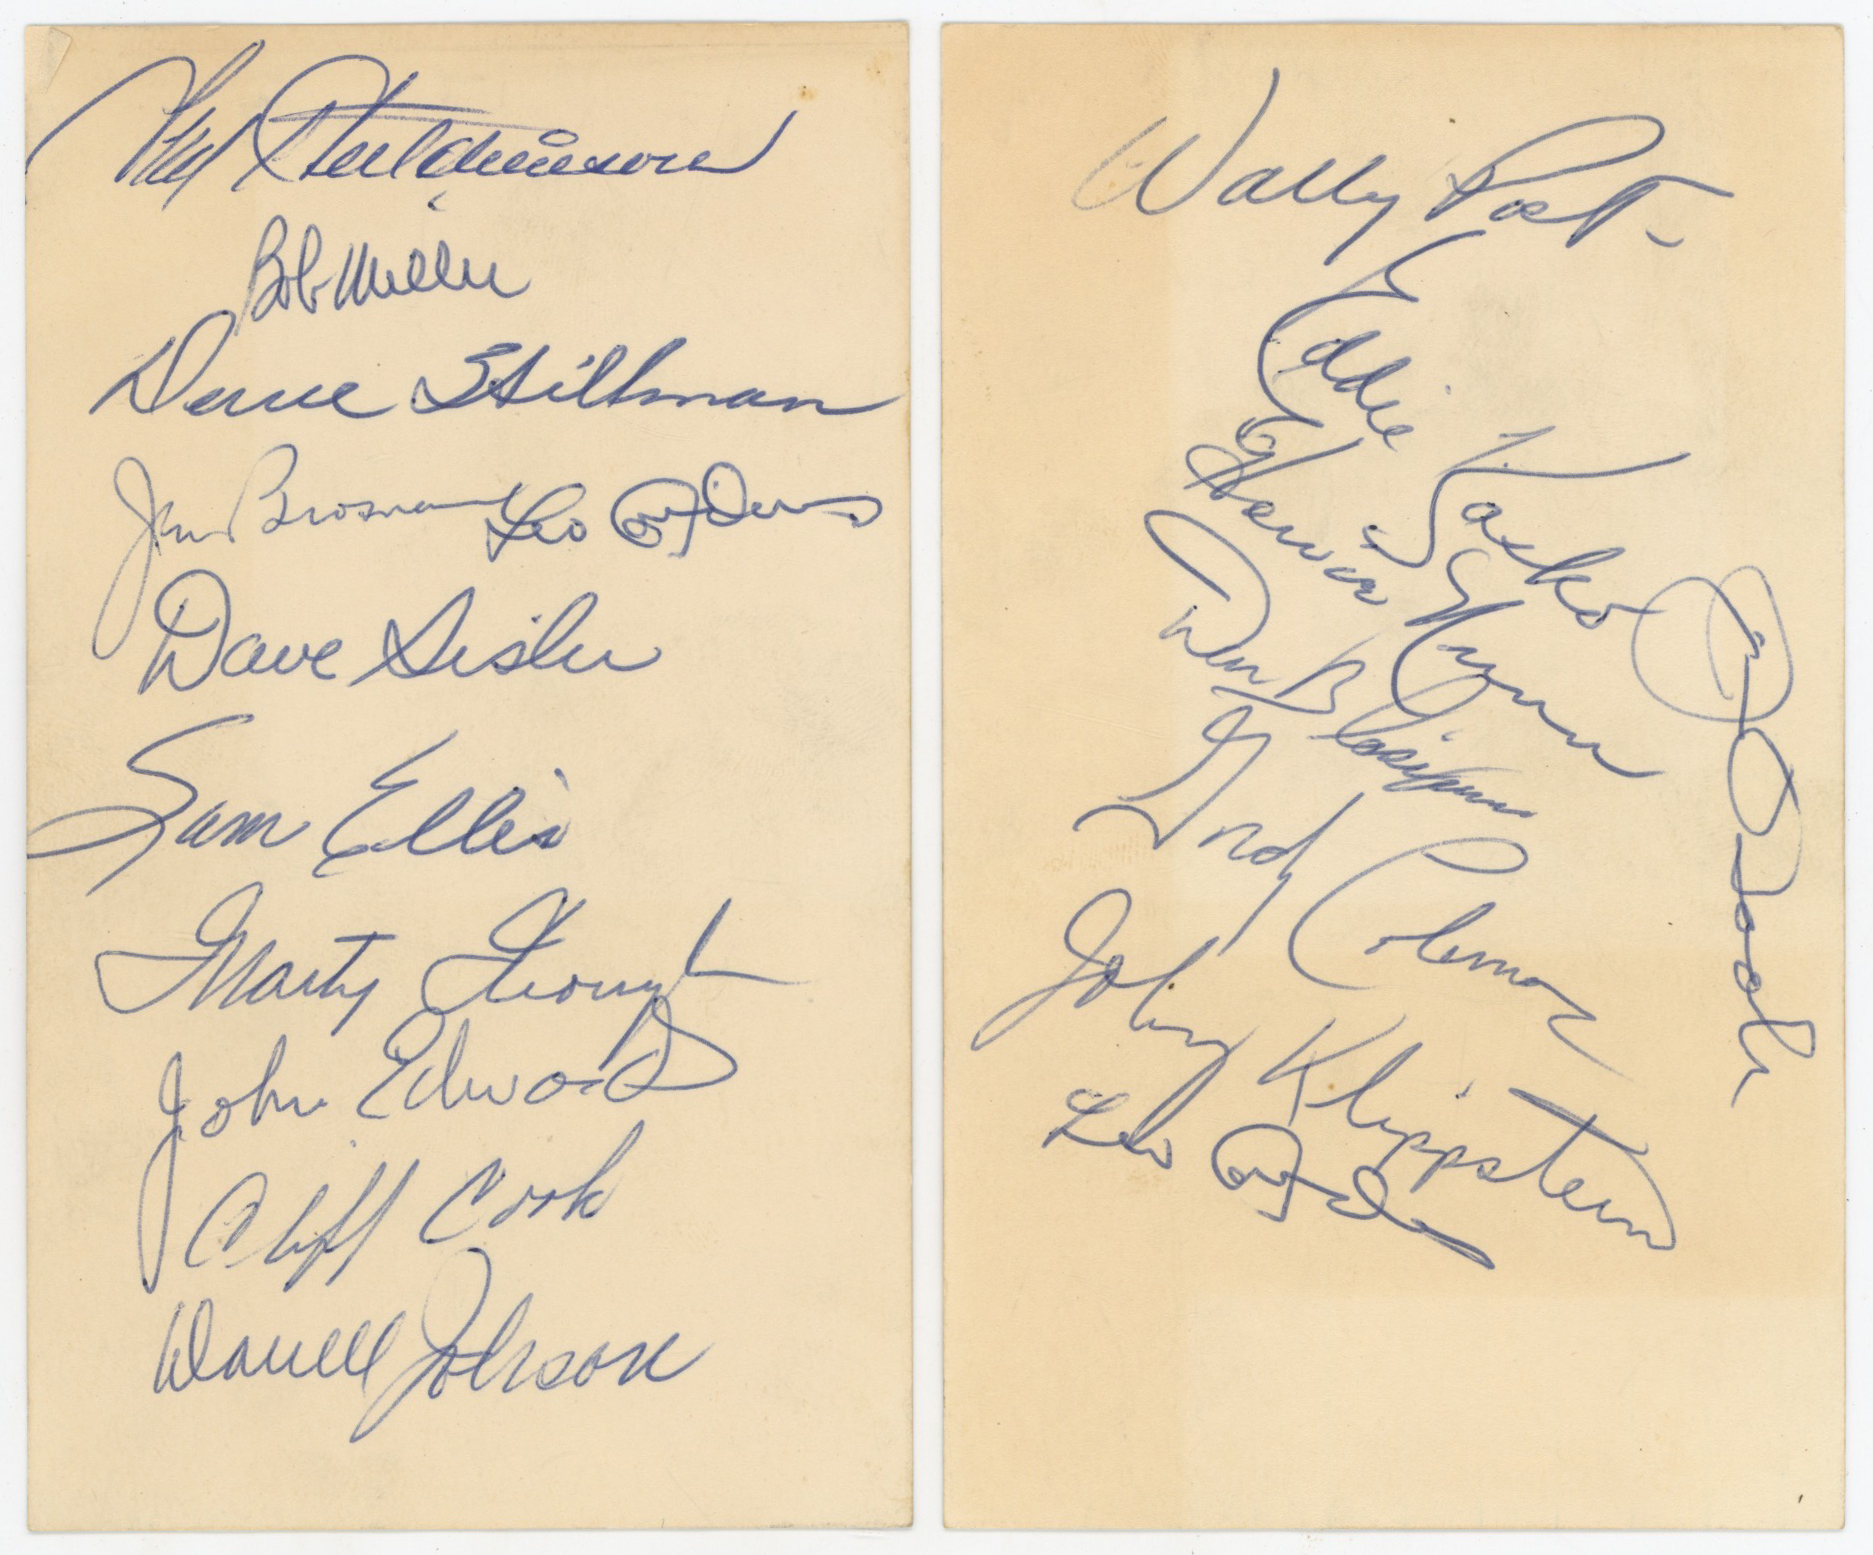 Fred Hutchinson
Bob Miller
Dave Hillman
Jim Brosnan Leo Cardenas
Dave Sisler
Sam Ellis
Marty Keough
John Edwards
Cliff Cook
Darrell Johnson
Wally Post
Eddie Kasko
Nunn
Don Blasingame
Gordy Coleman
Johnny Klippstein
Leo Cardenas
Jim O'Toole